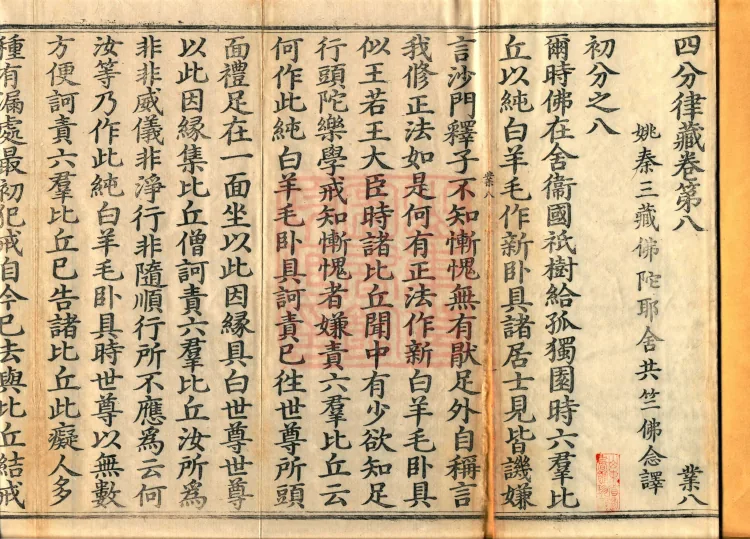 四分律藏卷第八
業八
姚秦三藏佛陀耶舍共竺佛念譯
初分之八
爾時佛在舍衞國祇樹給孤獨園時六羣比
丘以純白羊毛作新卧具諸居士見皆譏嫌
業八
言沙門釋子不知慚愧無有猒足外自稱言
我修正法如是何有正法作新白羊毛卧具
似王若王大臣時諸比丘聞中有少欲知足
行頭陀樂學戒知慚愧者嫌責六羣比丘云
何作此純白羊毛卧具訶責已徃世尊所頭
面禮足在一面坐以此因緣具白世尊世尊
以此因緣集比丘僧訶責六羣比丘汝所爲
非非威儀非淨行非隨順行所不應爲云何
汝等乃作此純白羊毛卧具時世尊以無數
方便訶責六羣比丘已告諸比丘此癡人多
種有漏處最初犯戒自今已去與比丘結戒